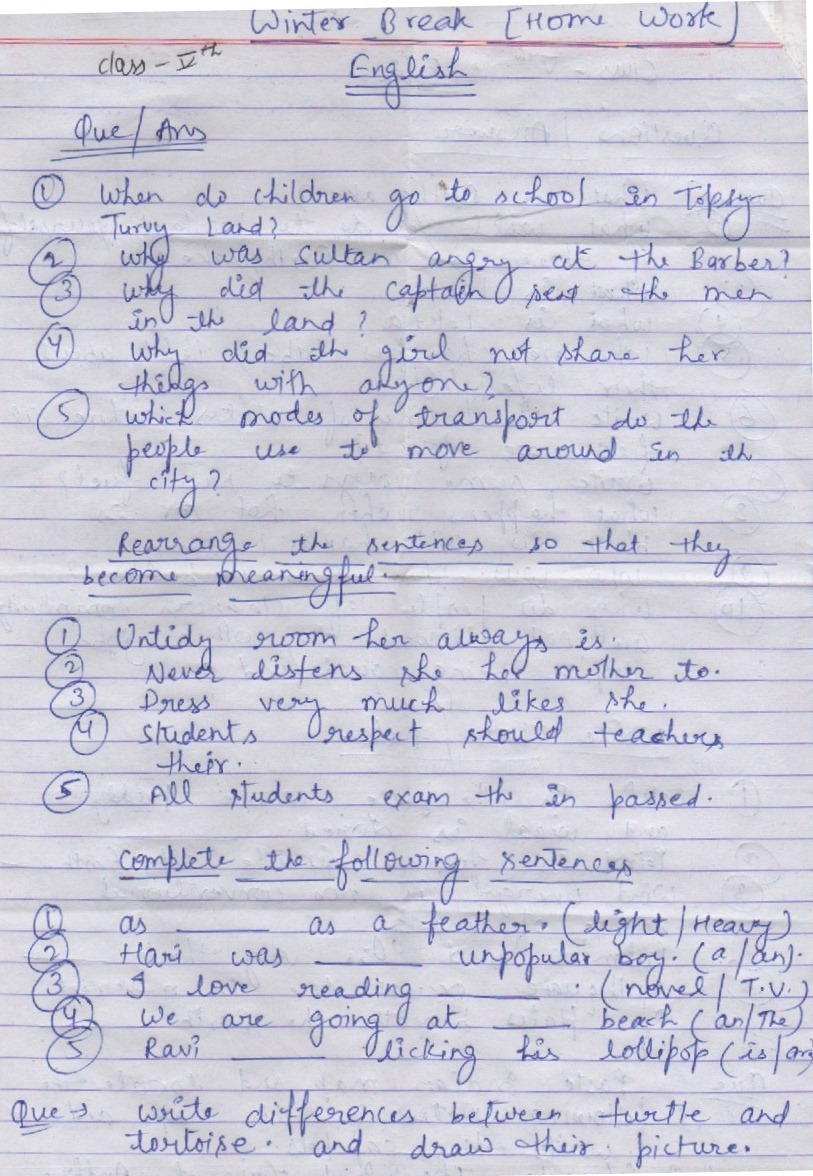 Winter Break [Home Work]
class - Vth
English
Que/Ans
① When do children go to school in Topsy-
Turvy Land?
② why was Sultan angry at the Barber?
③ why did the captain sent the men
in the land?
④ Why did th girl not share her
things with anyone?
⑤ which modes of transport do the
people use to move around in th
city?
Rearrange the sentences so that they
become meaningful.
① Untidy room her always is.
② Never listens she her mother to.
③ Dress very much likes she.
④ Students respect should teachers
their.
⑤ All students exam th in passed.
Complete the following sentences
① as ______ as a feather. (light/Heavy)
② Hari was ______ unpopular boy. (a/an).
③ I love reading ______. (novel/T.V.)
④ We are going at ______ beach (an/The)
⑤ Ravi ______ licking his lollipop (is/are
Que → write differences between turtle and
tortoise. and draw their picture.